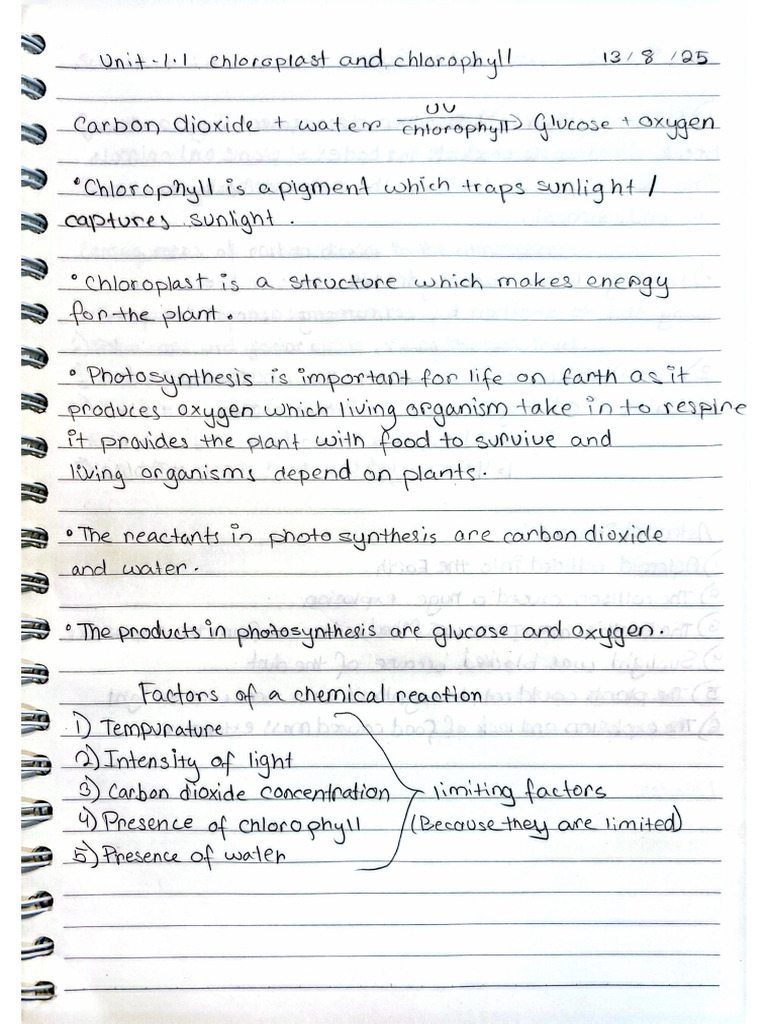 Unit-1.1 chloroplast and chlorophyll 13/8/25
UV
Carbon dioxide + water chlorophyll → Glucose + oxygen
•Chlorophyll is a pigment which traps sunlight /
captures sunlight.
•Chloroplast is a structure which makes energy
for the plant.
•Photosynthesis is important for life on Earth as it
produces oxygen which living organism take in to respire
it provides the plant with food to survive and
living organisms depend on plants.
•The reactants in photosynthesis are carbon dioxide
and water.
•The products in photosynthesis are glucose and oxygen.
Factors of a chemical reaction
1) Tempurature
2) Intensity of light
3) Carbon dioxide concentration limiting factors
4) Presence of chlorophyll (Because they are limited)
5) Presence of water